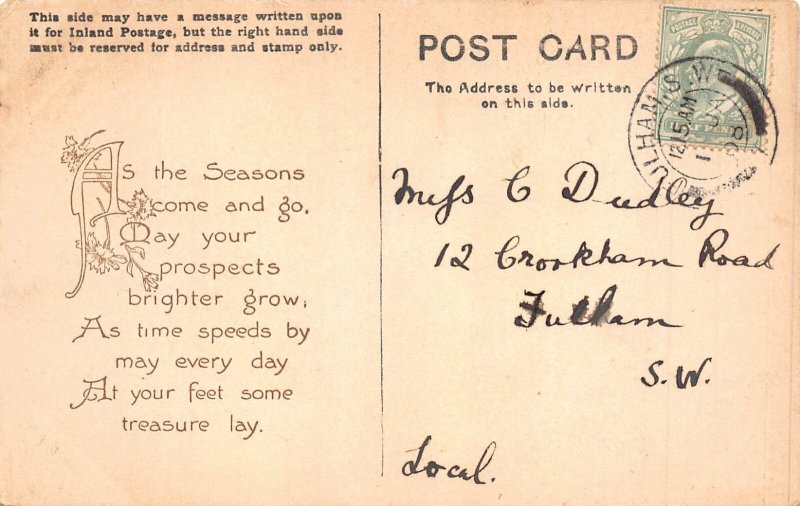 This side may have a message written upon
it for Inland Postage, but the right hand side
must be reserved for address and stamp only.
As the Seasons
come and go,
May your
prospects
brighter grow,
As time speeds by
may every day
At your feet some
treasure lay.
POST CARD
The Address to be written
on this side.
POSTAGE REVENUE
HALF PENNY
FULHAM. S.W.
12.15 AM
08
Miss C Dudley
12 Crookham Road
Fulham
S.W.
Local.